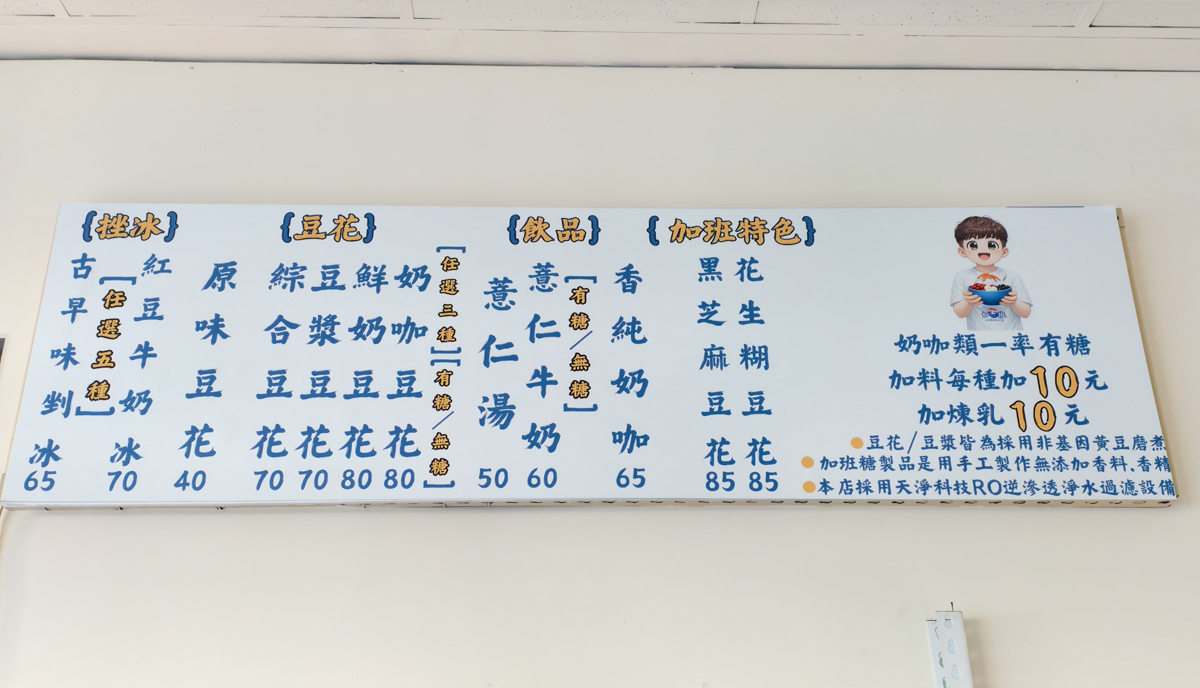 {挫冰}
古早味剉冰
65
[任選五種]
紅豆牛奶冰
70
{豆花}
原味豆花
40
綜合豆花
70
豆漿豆花
70
鮮奶豆花
80
奶咖豆花
80
[任選三種]
[有糖/無糖]
{飲品}
薏仁湯
50
薏仁牛奶
60
[有糖/無糖]
香純奶咖
65
{加班特色}
黑芝麻豆花
85
花生糊豆花
85
奶咖類一率有糖
加料每種加10元
加煉乳10元
●豆花/豆漿皆為採用非基因黃豆磨煮
●加班糖製品是用手工製作無添加香料.香精
●本店採用天淨科技RO逆滲透淨水過濾設備